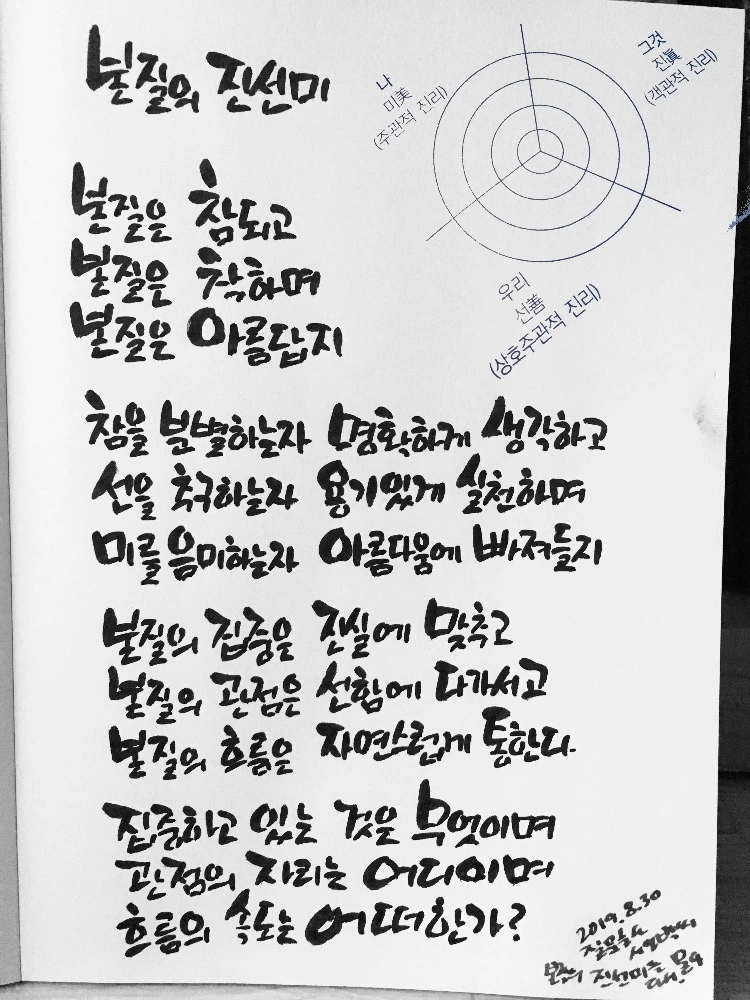 본질의 진선미
나
미美
(주관적 진리)
그것
진眞
(객관적 진리)
우리
선善
(상호주관적 진리)
본질은 참되고
본질은 착하며
본질은 아름답지
참을 분별하는자 명확하게 생각하고
선을 추구하는자 용기있게 실천하며
미를 음미하는자 아름다움에 빠져들지
본질의 집중은 진실에 맞추고
본질의 관점은 선함에 다가서고
본질의 흐름은 자연스럽게 통한다.
집중하고 있는 것은 무엇이며
관점의 자리는 어디이며
흐름의 속도는 어떠한가?
2019.8.30
진선미를